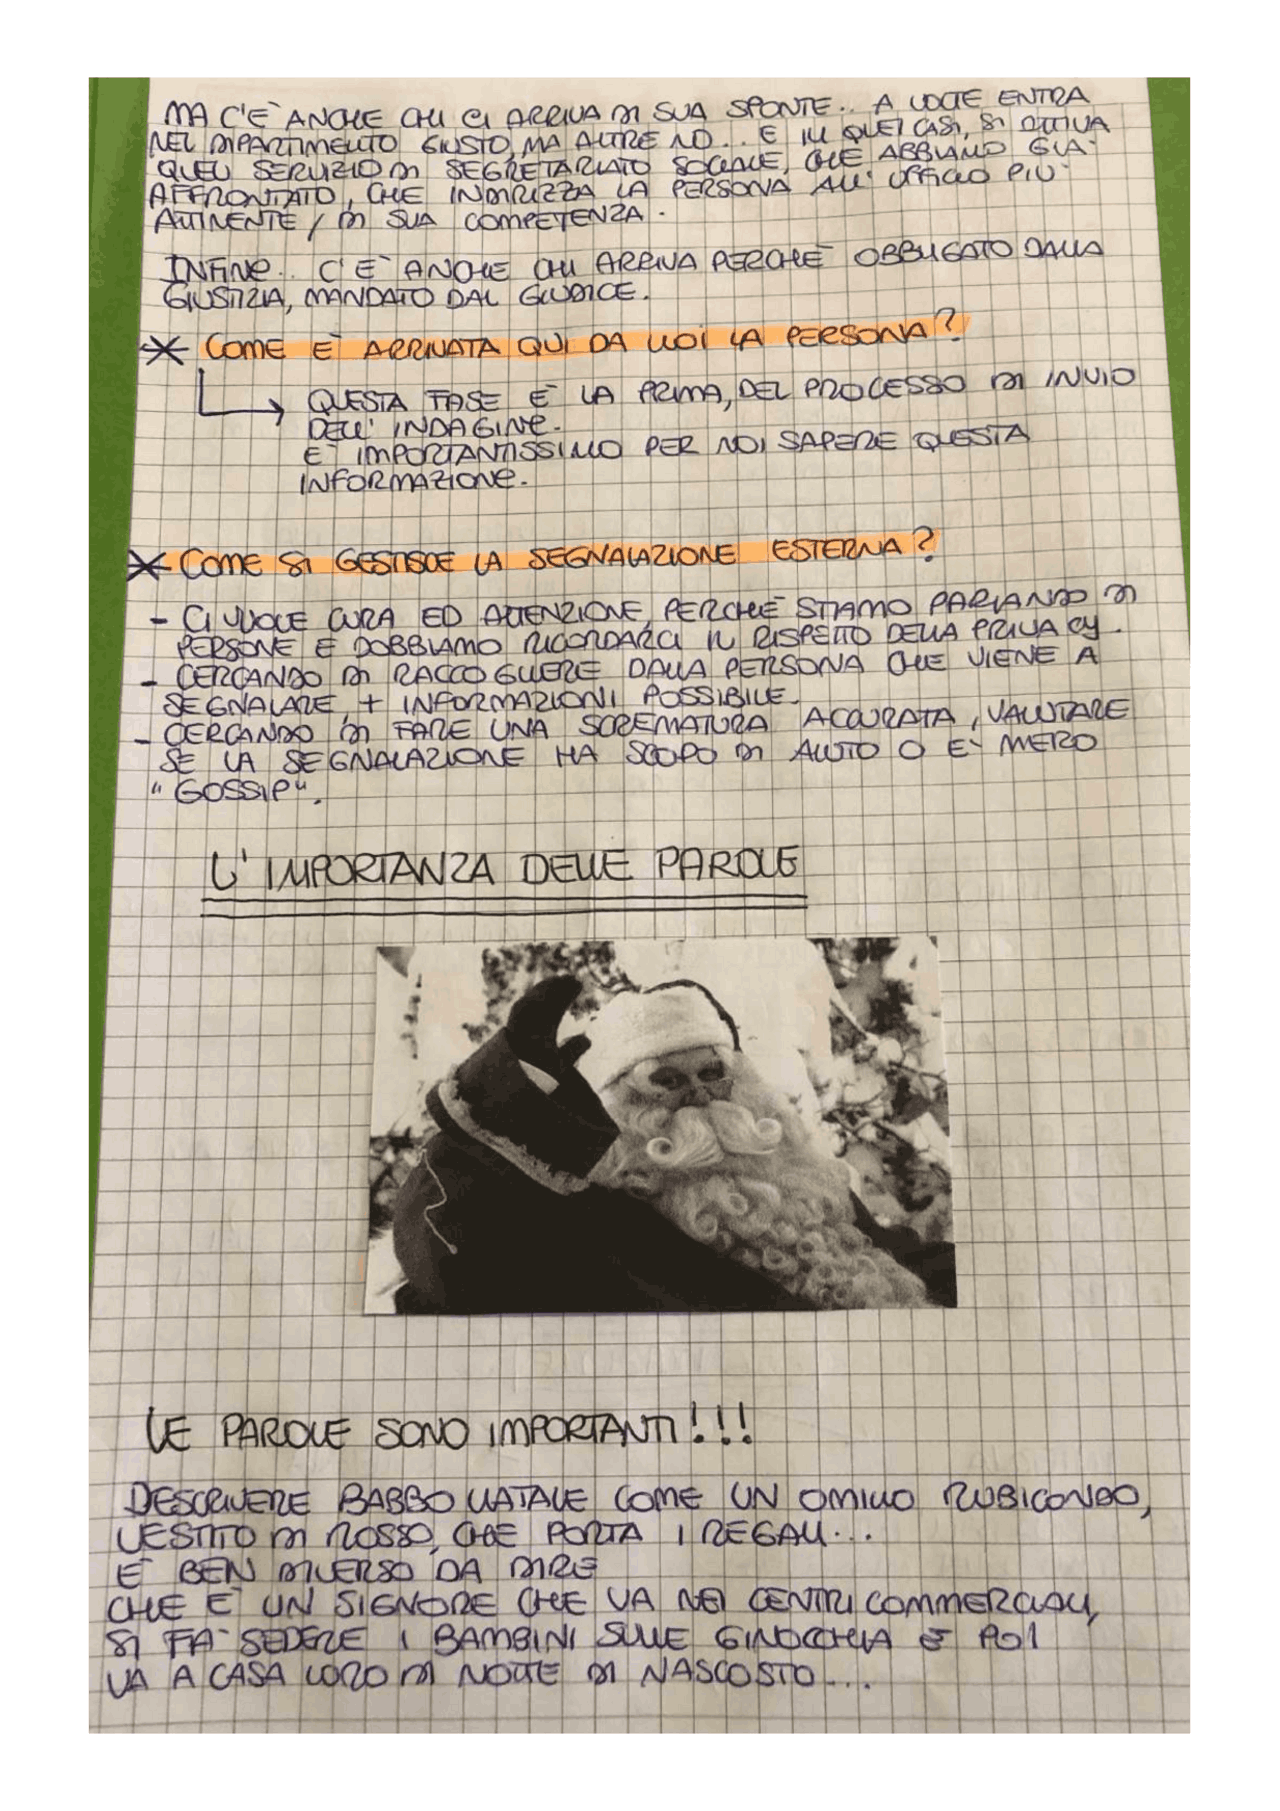 MA C'È ANCHE CHI CI ARRIVA DI SUA SPONTE.. A VOLTE ENTRA
NEL DIPARTIMENTO GIUSTO, MA ALTRE NO... E IN QUEI CASI, SI ATTIVA
QUEL SERVIZIO DI SEGRETARIATO SOCIALE, CHE ABBIAMO GIA'
AFFRONTATO, CHE INDIRIZZA LA PERSONA ALL' UFFICIO PIU'
ATTINENTE / DI SUA COMPETENZA.
INFINE.. C'È ANCHE CHI ARRIVA PERCHÈ OBBLIGATO DALLA
GIUSTIZIA, MANDATO DAL GIUDICE.
* COME È ARRIVATA QUI DA NOI LA PERSONA?
QUESTA FASE È LA PRIMA, DEL PROCESSO DI INVIO
DELL' INDAGINE.
È IMPORTANTISSIMO PER NOI SAPERE QUESTA
INFORMAZIONE.
* COME SI GESTISCE LA SEGNALAZIONE ESTERNA?
- CI VUOLE CURA ED ATTENZIONE, PERCHÈ STIAMO PARLANDO DI
PERSONE E DOBBIAMO RICORDARCI IL RISPETTO DELLA PRIVACY.
- CERCANDO DI RACCOGLIERE DALLA PERSONA CHE VIENE A
SEGNALARE, + INFORMAZIONI POSSIBILE.
- CERCANDO DI FARE UNA SCREMATURA ACCURATA, VALUTARE
SE LA SEGNALAZIONE HA SCOPO DI AIUTO O E' MERO
"GOSSIP".
L'IMPORTANZA DELLE PAROLE
LE PAROLE SONO IMPORTANTI!!!
DESCRIVERE BABBO NATALE COME UN OMINO RUBICONDO,
VESTITO DI ROSSO, CHE PORTA I REGALI...
È BEN DIVERSO DA DIRE
CHE È UN SIGNORE CHE VA NEI CENTRI COMMERCIALI,
SI FA' SEDERE I BAMBINI SULLE GINOCCHIA E POI
VA A CASA LORO DI NOTTE DI NASCOSTO...